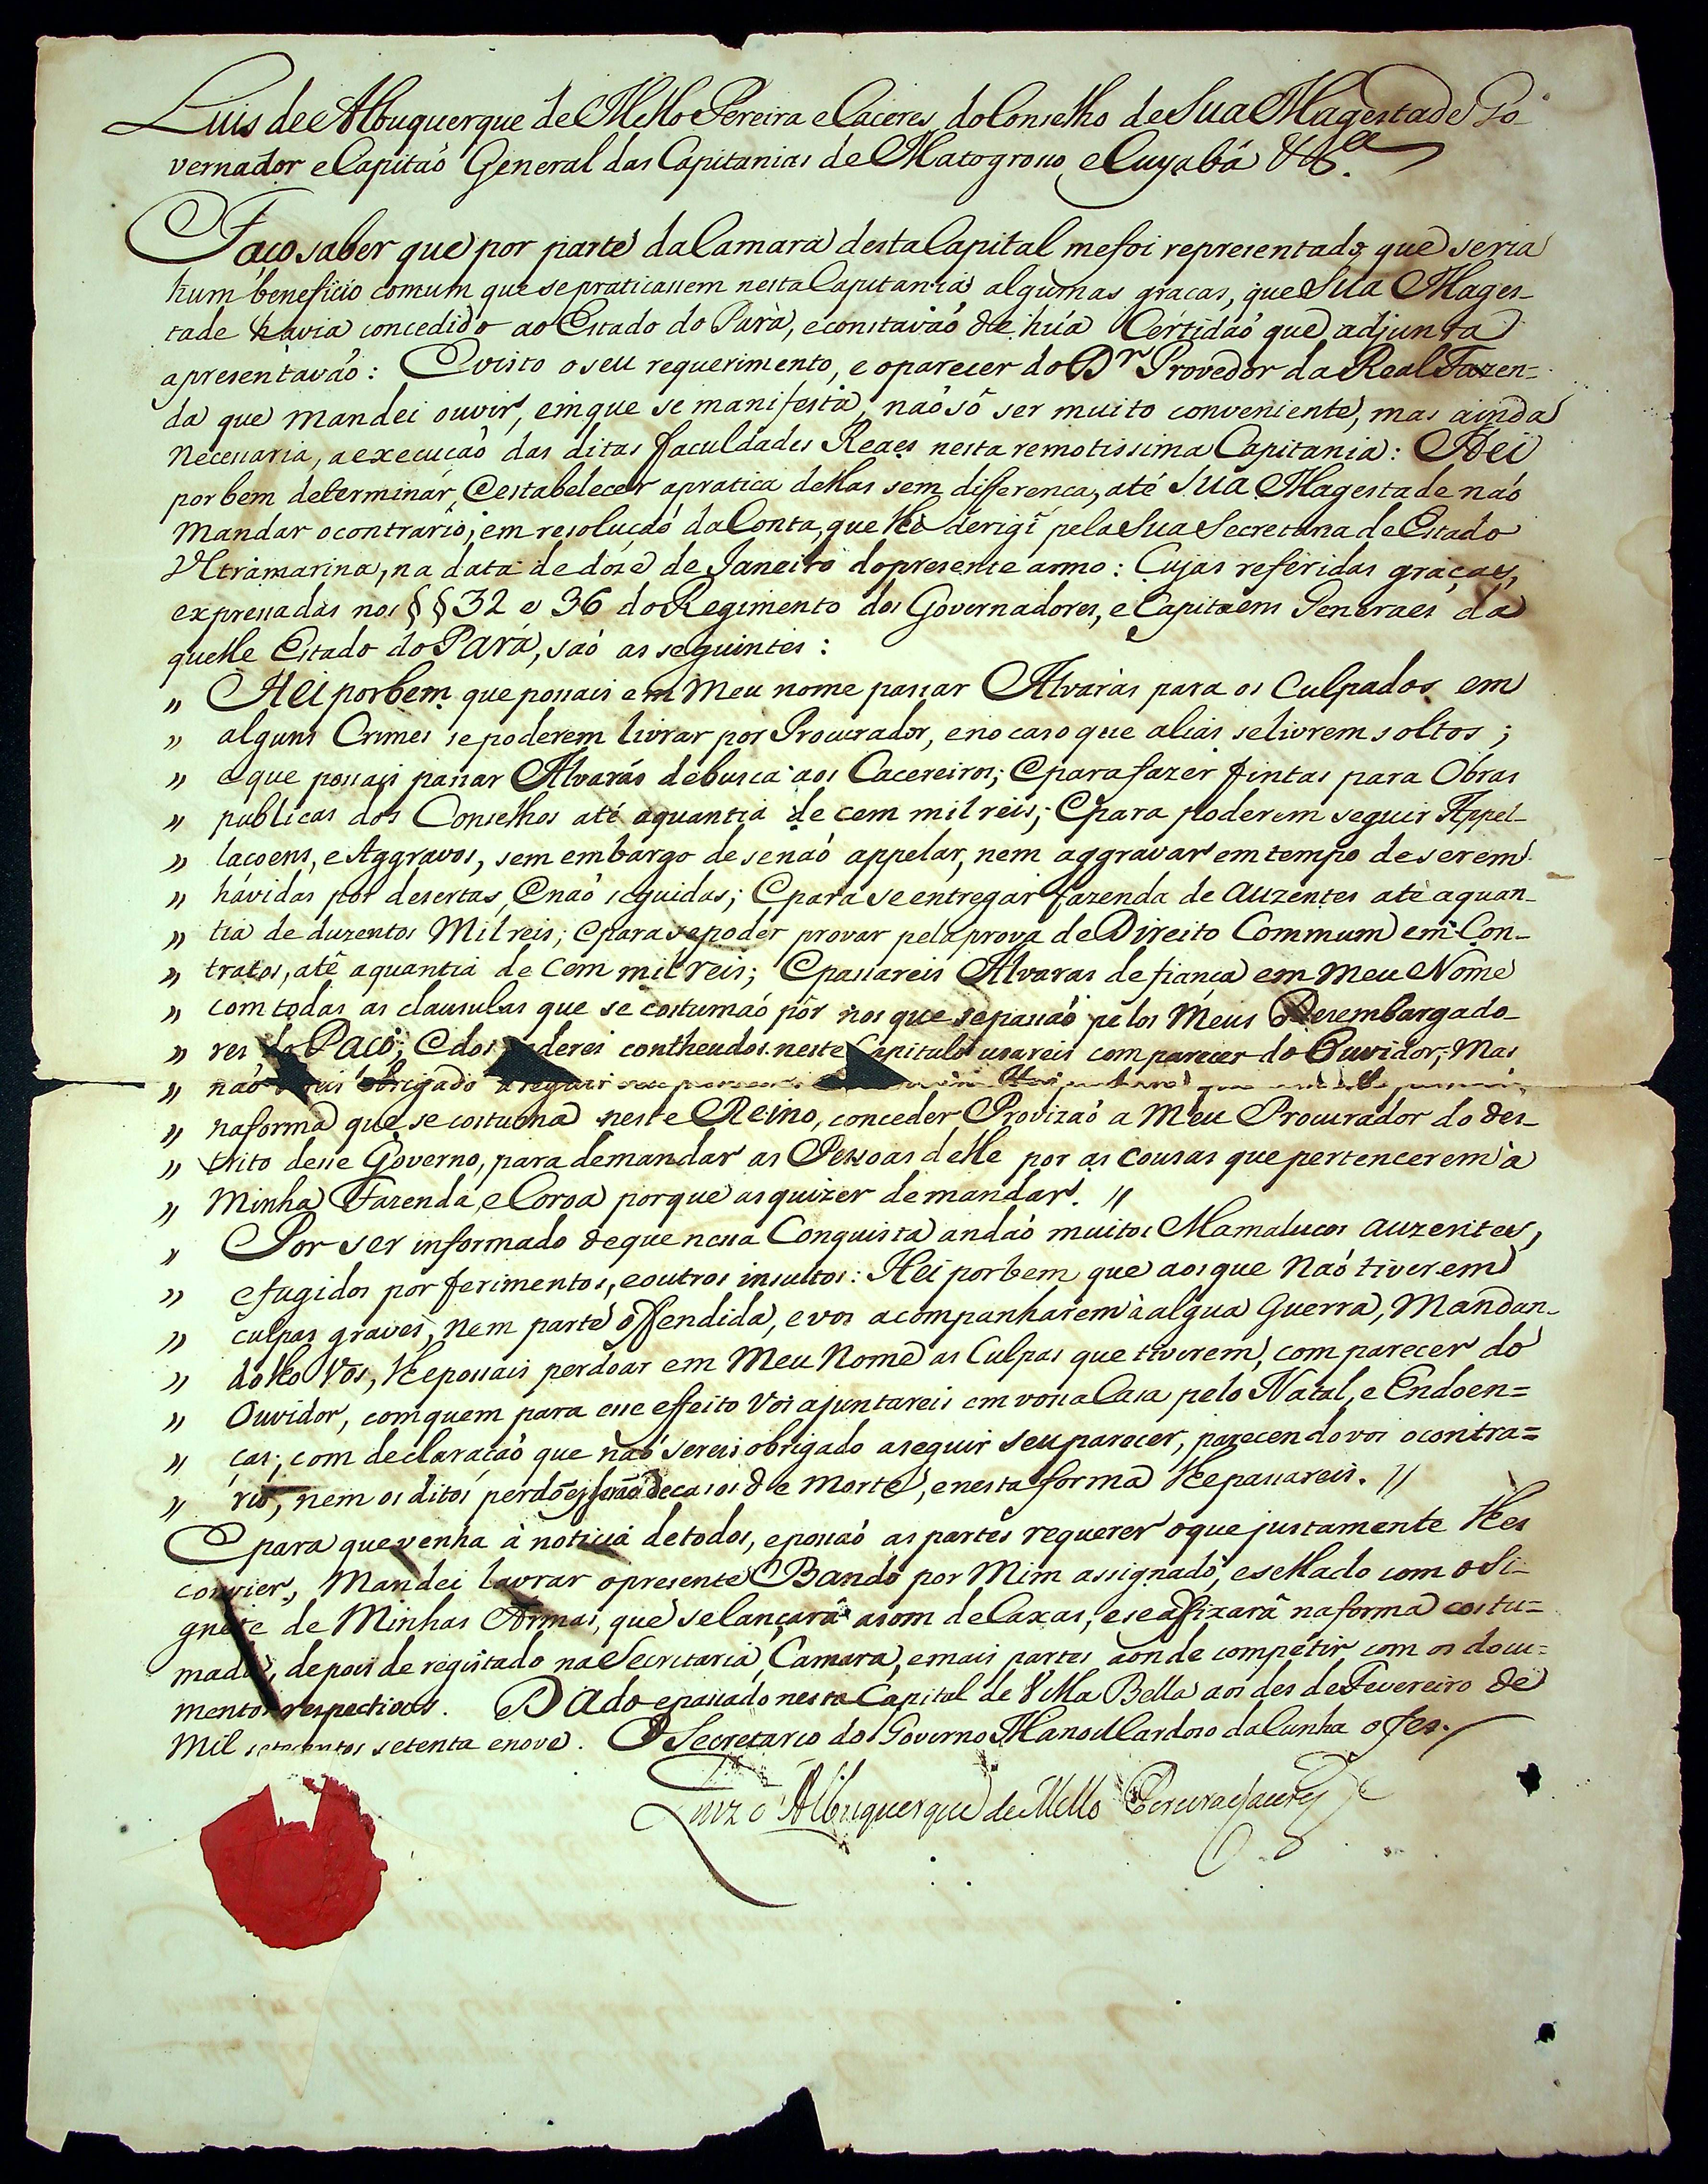 Luis de Albuquerque de Mello Pereira e Caceres, do Conselho de Sua Magestade Go-
vernador e Capitaõ General das Capitanias de Matogrosso, e Cuyabá &c.ª
Faço saber que por parte da Camara desta Capital me foi representado, que seria
hum beneficio comum que se praticassem nesta Capitania algumas graças, que Sua Mages-
tade havia concedido ao Estado do Parà, e constavaõ de húa Certidaõ que adjunta
apresentavaõ: E visto o seu requerimento, e o parecer do D.r Provedor da Real Fazen=
da que mandei ouvir, em que se manifesta, naõ só ser muito conveniente, mas ainda
necessaria, a execuçaõ das ditas faculdades Reaes nesta remotissima Capitania: Hei
por bem determinar, e estabelecer a pratica dellas sem differença, até Sua Magestade naõ
mandar o contrario, em resoluçaõ da Conta, que lhe derigî pela Sua Secretaria de Estado
Ultramarina, na data de dóze de Janeiro do presente anno: Cujas referidas graças,
expressadas nos §§ 32 e 36 do Regimento dos Governadores, e Capitaens Generaes da
quelle Estado do Pará, saõ as seguintes:
" Hei por bem que possais em Meu nome passar Alvaràs para os Culpados em
" alguns Crimes se poderem livrar por Procurador, e no caso que alias se livrem soltos;
" e que possais passar Alvarás de busca aos Cacereiros; E para fazer fintas para Obras
" publicas dos Conselhos até a quantia de cem mil reis; E para poderem seguir Appel-
" laçoens, e Aggravos, sem embargo de se naõ appelar, nem aggravar em tempo de serem
" hávidas por desertas, e naõ seguidas; E para se entregar fazenda de auzentes atè a quan-
" tia de duzentos Mil reis; e para se poder provar pela prova de Direito Commum em Con-
" tratos, atê a quantia de Cem mil reis; E passareis Alvaras de fiança em Meu Nome
" com todas as clausulas que se costumaõ pôr nos que se passaõ pelos Meus Desembargado-
" res do Paço; E dos poderes contheudos neste Capitulo usareis com parecer do Ouvidor; Mas
" naõ sereis obrigado a seguir
" na forma que se costuma neste Reino, conceder Provizaõ a Meu Procurador do des-
" trito desse Governo, para demandar as Pessoas delle por as cousas que pertencerem à
" Minha Fazenda, e Coroa porque as quizer demandar. "
" Por ser informado de que nessa Conquista andaõ muitos Mamalucos auzentes,
" e fugidos por ferimentos, e outros insultos: Hei por bem que aos que Naõ tiverem
" culpas graves, nem parte offendida, e vos acompanharem à algua Guerra, Mandan-
" dolho Vos, lhe possais perdoar em Meu Nome as Culpas que tiverem, com parecer do
" Ouvidor, com quem para esse effeito Vos ajuntareis em vossa Casa pelo Natal, e Endoen=
" ças; com declaraçaõ que naõ sereis obrigado a seguir seu parecer, parecendovos o contra=
" rio, nem os ditos perdões seraõ de casos de Morte, e nesta forma lhe passareis. "
E para que venha à noticia de todos, e possaõ as partes requerer o que justamente lhes
convier, Mandei lavrar o presente Bando por Mim assignado, e sellado com o Si-
gnete de Minhas Armas, que se lançará a som de Caxas, e se afixará na forma costu=
mada, depois de registado na Secretaria, Camara, e mais partes aonde competir com os docu=
mentos respectivos. Dado e passado nesta Capital de Villa Bella aos des de Fevereiro de
Mil setecentos setenta e nove. O Secretario do Governo Manoel Cardoso da Cunha o fez.
Luiz d'Albuquerque de Mello Pereira e Caceres